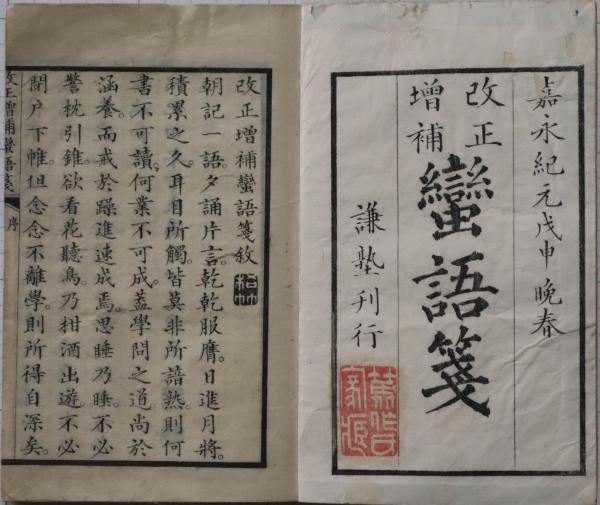 嘉永紀元戊申晩春
改正
增補
蠻語箋
謙塾刊行
改正增補蠻語箋敘
朝記一語。夕誦片言。乾乾服膺。日進月將。
積累之久。耳目所觸。皆莫非所諳熟。則何
書不可讀。何業不可成。蓋學問之道。尚於
涵養。而戒於躁進速成焉。思睡乃睡。不必
警枕引錐。欲看花聽鳥。乃拑酒出遊。不必
閉户下帷。但念念不離學。則所得自深矣。
改正增補蠻語箋
序